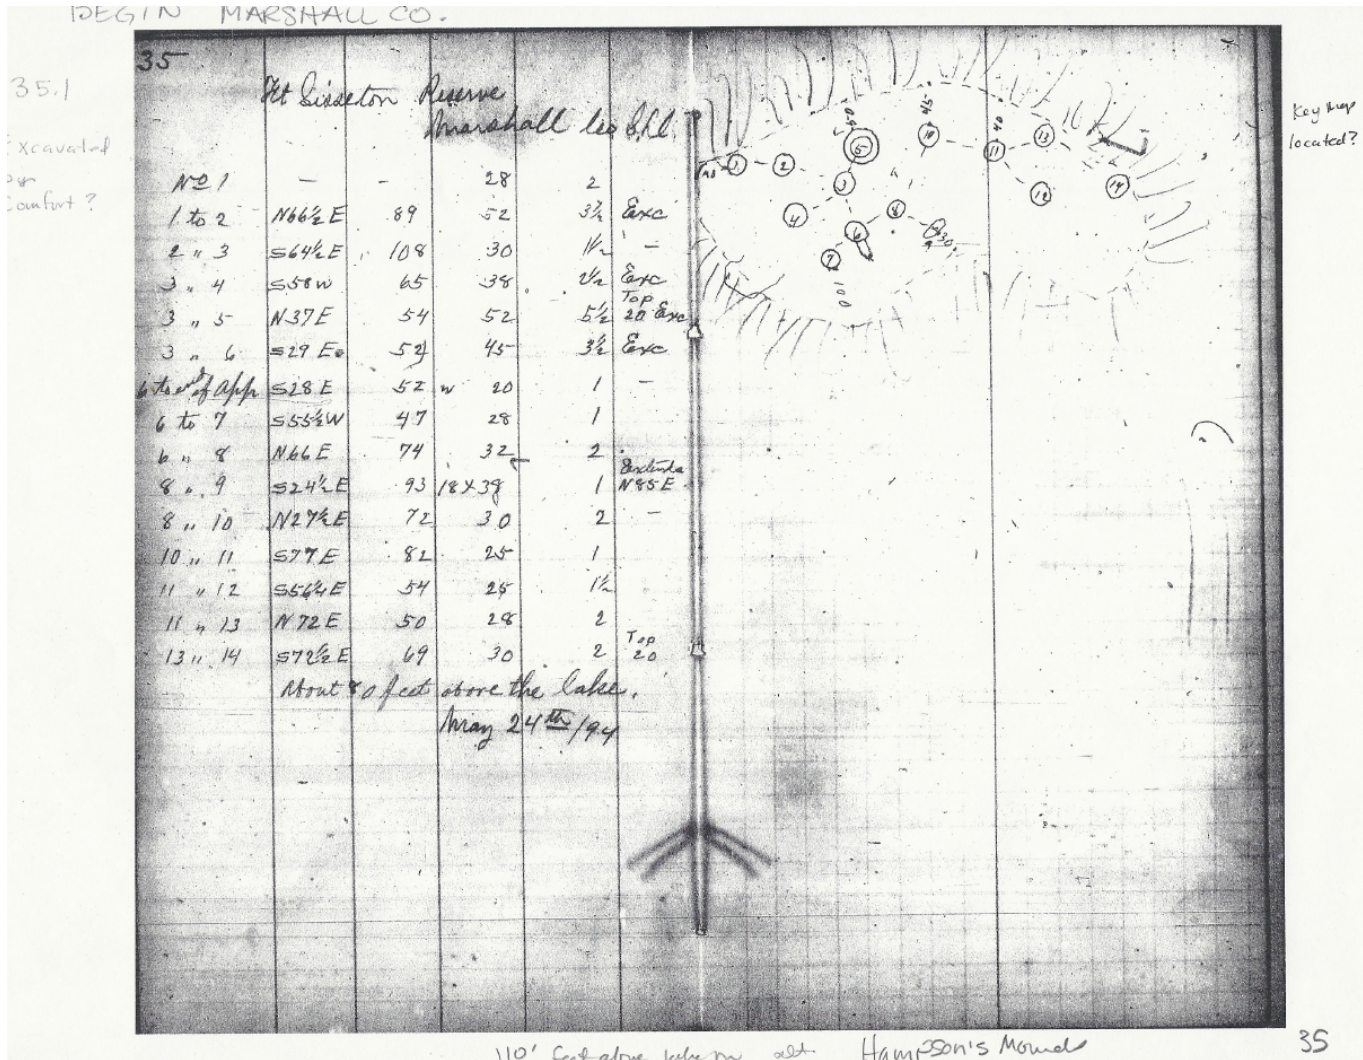 BEGIN MARSHALL CO.
35
35.1
Ft Sisseton Reserve
Marshall Co S.D.
Key Map
located?
Excavated
per
Comfort?
No 1 - - 28 2
1 to 2 N66½E 89 52 3½ Exc
2 " 3 S64½E 108 30 1½ -
3 " 4 S58W 65 38 2½ Exc
3 " 5 N37E 54 52 5½ Top 20 Exc
3 " 6 S29E 52 45 3½ Exc
6 to end of app S28E 52 w 20 1 -
6 to 7 S55½W 47 28 1
6 " 8 N66E 74 32 2
8 " 9 S24½E 93 18X38 1 Extends N85E
8 " 10 N27½E 72 30 2 -
10 " 11 S77E 82 25 1
11 " 12 S56¼E 54 25 1½
11 " 13 N72E 50 28 2
13 " 14 S72½E 69 30 2 Top 20
About 80 feet above the lake.
May 24th/94
1
2
3
4
5
6
7
8
9
10
11
12
13
14
45
40
100
30
110' feet above lake
Hampson's Mounds
35